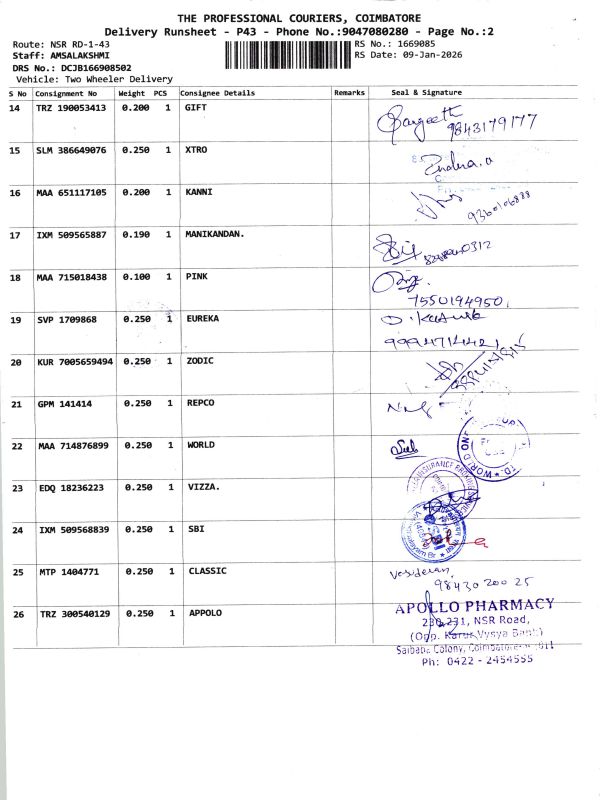 THE PROFESSIONAL COURIERS, COIMBATORE
Delivery Runsheet - P43 - Phone No.:9047080280 - Page No.:2
Route: NSR RD-1-43
Staff: AMSALAKSHMI
DRS No.: DCJB166908502
Vehicle: Two Wheeler Delivery
RS No.: 1669085
RS Date: 09-Jan-2026
S No Consignment No Weight PCS Consignee Details Remarks Seal & Signature
14 TRZ 190053413 0.200 1 GIFT
9843179177
15 SLM 386649076 0.250 1 XTRO
16 MAA 651117105 0.200 1 KANNI
17 IXM 509565887 0.190 1 MANIKANDAN.
18 MAA 715018438 0.100 1 PINK
7550194950
19 SVP 1709868 0.250 1 EUREKA
20 KUR 7005659494 0.250 1 ZODIC
21 GPM 141414 0.250 1 REPCO
22 MAA 714876899 0.250 1 WORLD
23 EDQ 18236223 0.250 1 VIZZA.
24 IXM 509568839 0.250 1 SBI
25 MTP 1404771 0.250 1 CLASSIC
98430 200 25
26 TRZ 300540129 0.250 1 APPOLO
APOLLO PHARMACY
230,231, NSR Road,
(Opp. Karur Vysya Bank)
Saibaba Colony,
Ph: 0422 - 2454555